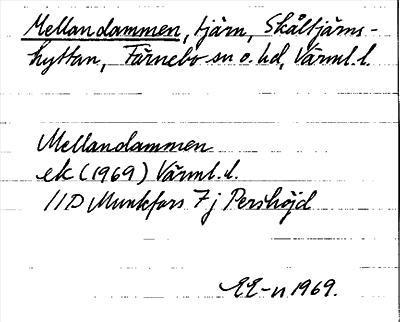 Mellandammen, tjärn, Skåltjärns-
hyttan, Färnebo sn o. hd, Värml. l.
Mellandammen
ek (1969) Värml. l.
11D Munkfors 7j Pershöjd
EE-n 1969.